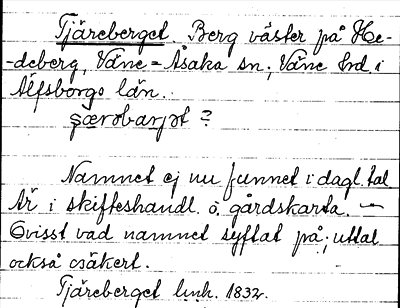 Tjäreberget. Berg väster på He-
-deberg, Väne-Åsaka sn; Väne hd i
Älfsborgs län.
?
Namnet ej nu funnet i dagl. tal
är i skifteshandl. o. gårdskarta. –
Ovisst vad namnet syftat på; uttal
också osäkert.
Tjäreberget l.m.h. 1832.